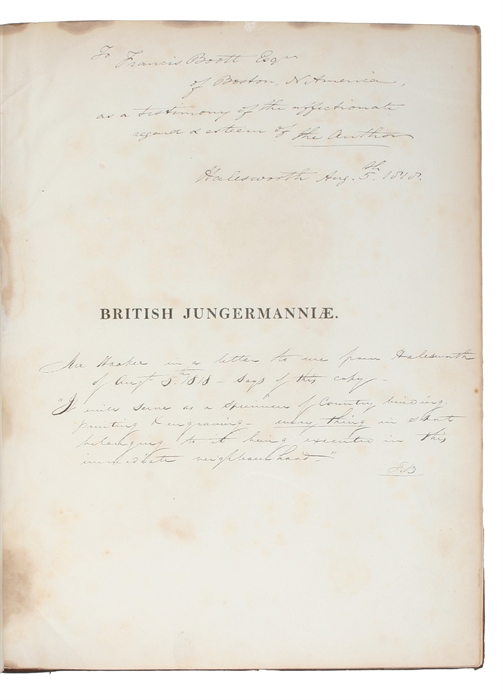 To Francis Boott Esqr
of Boston, N America,
as a testimony of the affectionate
regard & esteem of the Author
Halesworth Aug. 5th. 1818.
BRITISH JUNGERMANNIÆ.
Mr Hooker in a letter to me from Halesworth
of Augt 5th 1818 – says of this copy –
"It will serve as a specimen of Country binding,
printing & engraving – every thing in short
belonging to it being executed in this
immediate neighbourhood."
FB